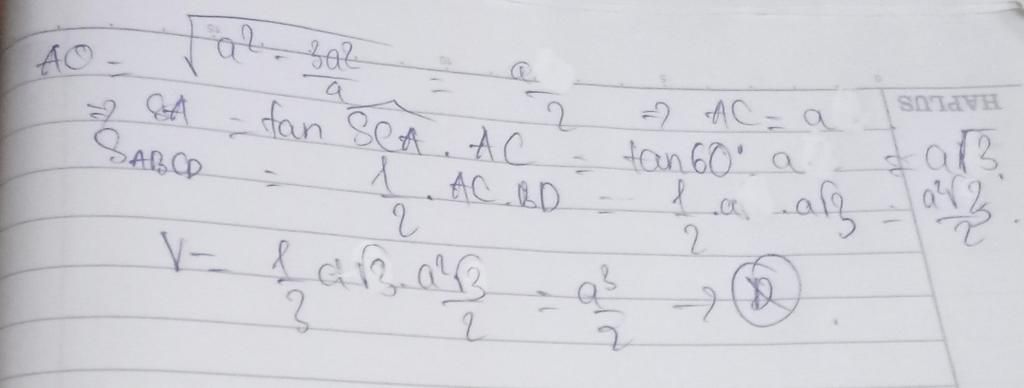 AO = √(a² - 3a²/a) = a/2 ⇒ AC = a
HAPLUS
⇒ SA = tan SCA . AC = tan60° a = a√3.
S_ABCD = 1/2 . AC . BD = 1/2 . a . a√3 = a²√3/2 .
V = 1/3 a√3 . a²√3/2 = a³/2 → D .